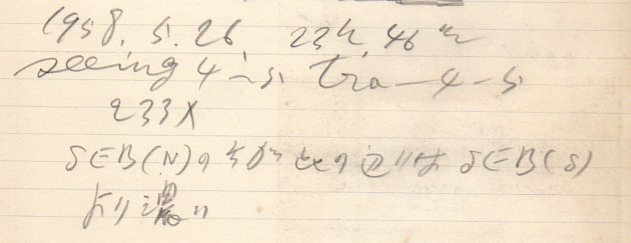 1958. 5. 26. 23h. 46m
seeing 4-5. tra-4-5
233X
SEB(N)の 辺りは SEB(S)
より濃い